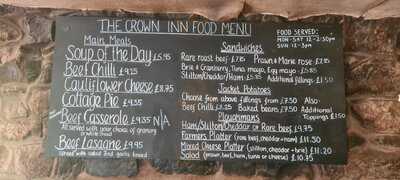 THE CROWN INN FOOD MENU
FOOD SERVED:
MON-SAT 12-2:30PM
SUN 12-3PM
Main Meals
Soup of the Day £5.95
Beef Chilli £9.95
Cauliflower Cheese £8.75
Cottage Pie £9.95
Beef Casserole £9.35 N/A
All served with your choice of granary
or white bread
Beef Lasagne £9.95
Served with salad and garlic bread
Sandwiches
Rare roast beef £7.15 Prawn & Marie rose £7.95
Brie & Cranberry, Tuna mayo, Egg mayo £5.85
Stilton/Cheddar/Ham £5.85 Additional fillings £1.50
Jacket Potatoes
Choose from above fillings from £7.50 Also:
Beef Chilli £8.25 Baked beans £7.50 Additional
Toppings £1.50
Ploughmans
Ham/Stilton/Cheddar or Rare beef £9.75
Farmers Platter (rare beef, cheddar + ham) £11.50
Mixed Cheese Platter (stilton, cheddar + brie) £11.20
Salad (prawn, beef, ham, tuna or cheese) £10.75